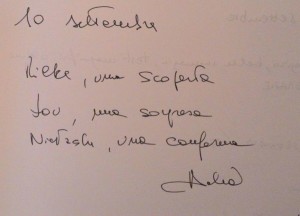 10 settembre
Rilke, una scoperta
tou, una sorpresa
Nietzsche, una conferma